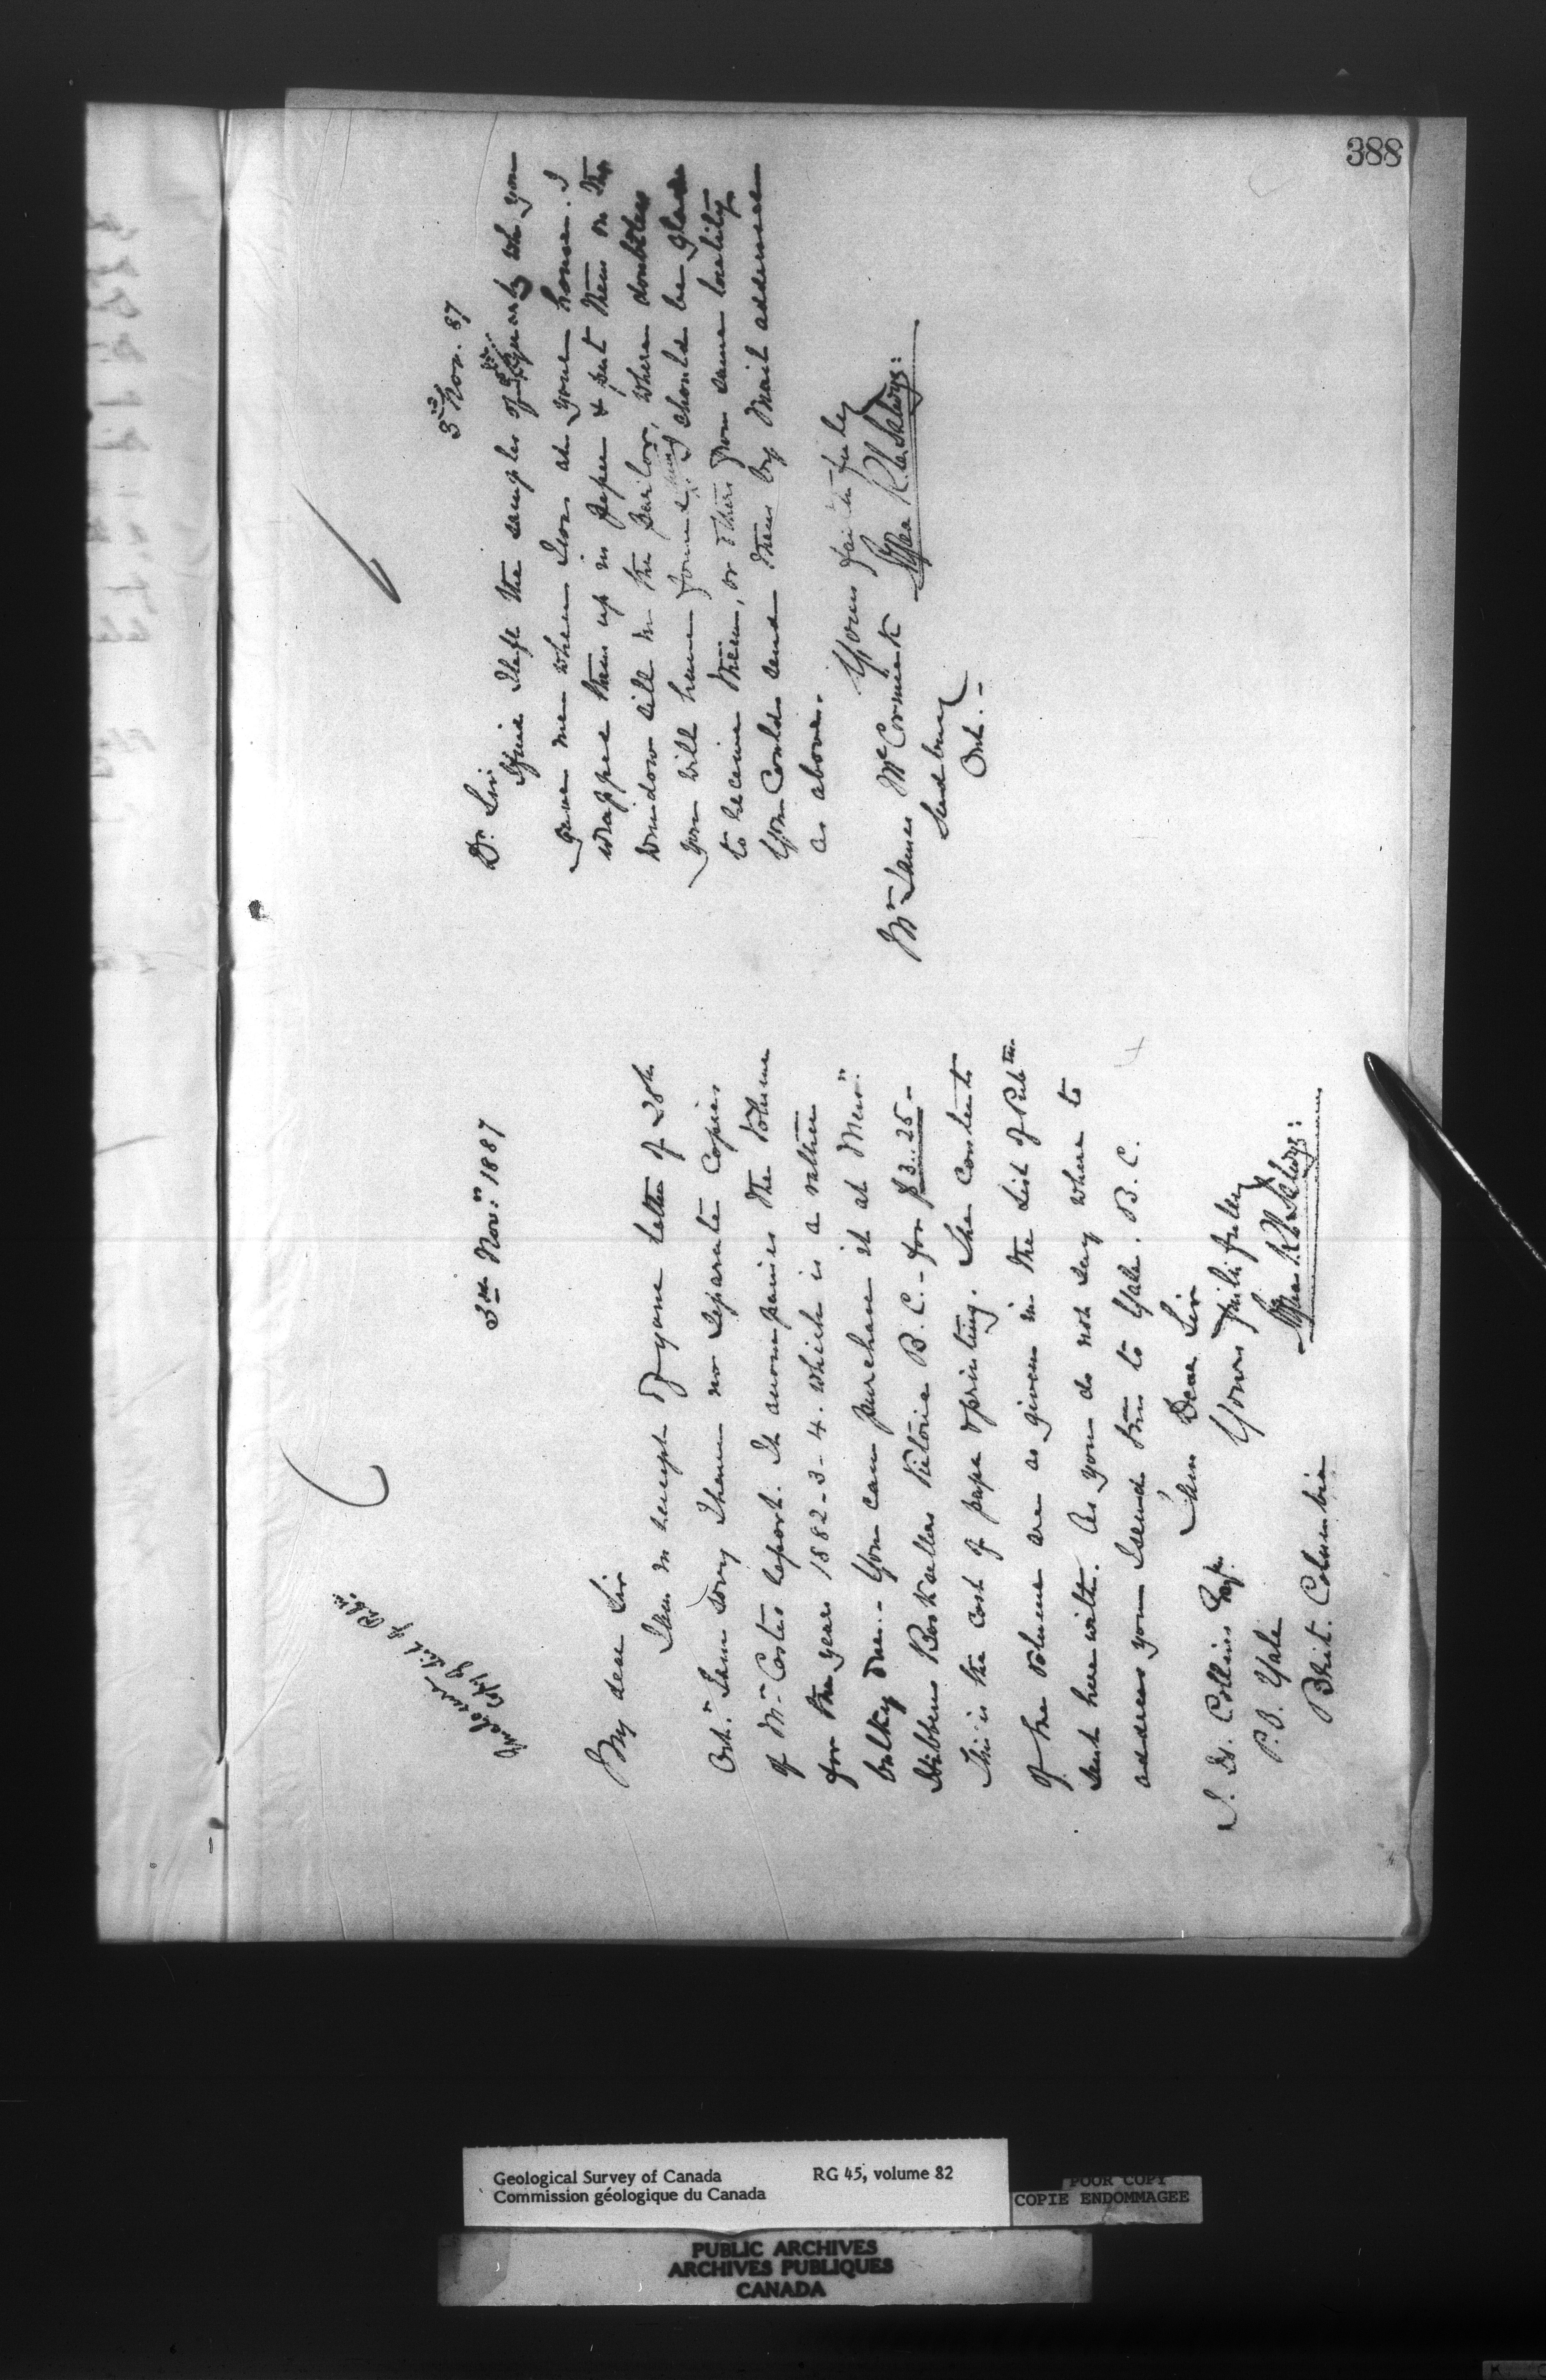 388
3rd Nov:r 1887
My dear Sir
I am in receipt of your letter of 28th
Oct.r I am sorry I have no separate Copies
of Mr Costes report. It accompanies the Volume
for the years 1882-3-4. which is a rather
bulky one. - You can purchase it at Mess:rs
Hibbens Booksellers Victoria B. C. - for $3.25 -
This is the cost of paper & printing. The contents
of the Volume are as given in the List of Pubtns
sent herewith. As you do not say where to
address you I send this to Yale. B. C.
I am Dear Sir
Yours faithfully
Alfred R. C. Selwyn
J. H. Collins Esqr.
P.O. Yale
Brit. Columbia
3rd Nov. 87
Dr Sir
I find I left the samples of quartz wh you
gave me when I was at your house. I
wrapped them up in paper & put them on the
window sill in the parlor, where doubtless
you will have found them. I should be glad
to receive them, or others from same locality
You could send them by Mail addressed
as above.
Yours faithfully
Alfred R. C. Selwyn
Mr James McCormick
Sudbury
Ont. -
Geological Survey of Canada RG 45, volume 82
Commission géologique du Canada
POOR COPY
COPIE ENDOMMAGEE
PUBLIC ARCHIVES
ARCHIVES PUBLIQUES
CANADA